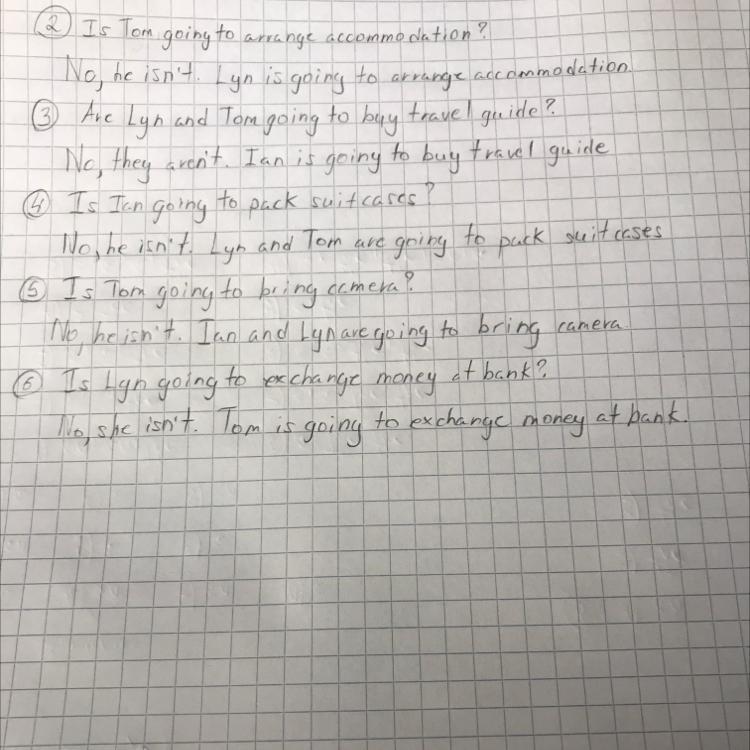 ② Is Tom going to arrange accommodation?
No, he isn't. Lyn is going to arrange accommodation.
③ Are Lyn and Tom going to buy travel guide?
No, they aren't. Ian is going to buy travel guide
④ Is Ian going to pack suitcases?
No, he isn't. Lyn and Tom are going to pack suitcases
⑤ Is Tom going to bring camera?
No, he isn't. Ian and Lyn are going to bring camera.
⑥ Is Lyn going to exchange money at bank?
No, she isn't. Tom is going to exchange money at bank.